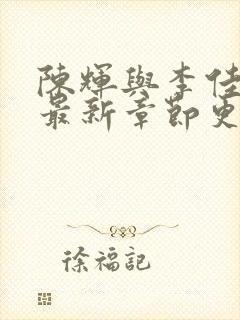 陳輝與李佳
最新章節更
徐福記